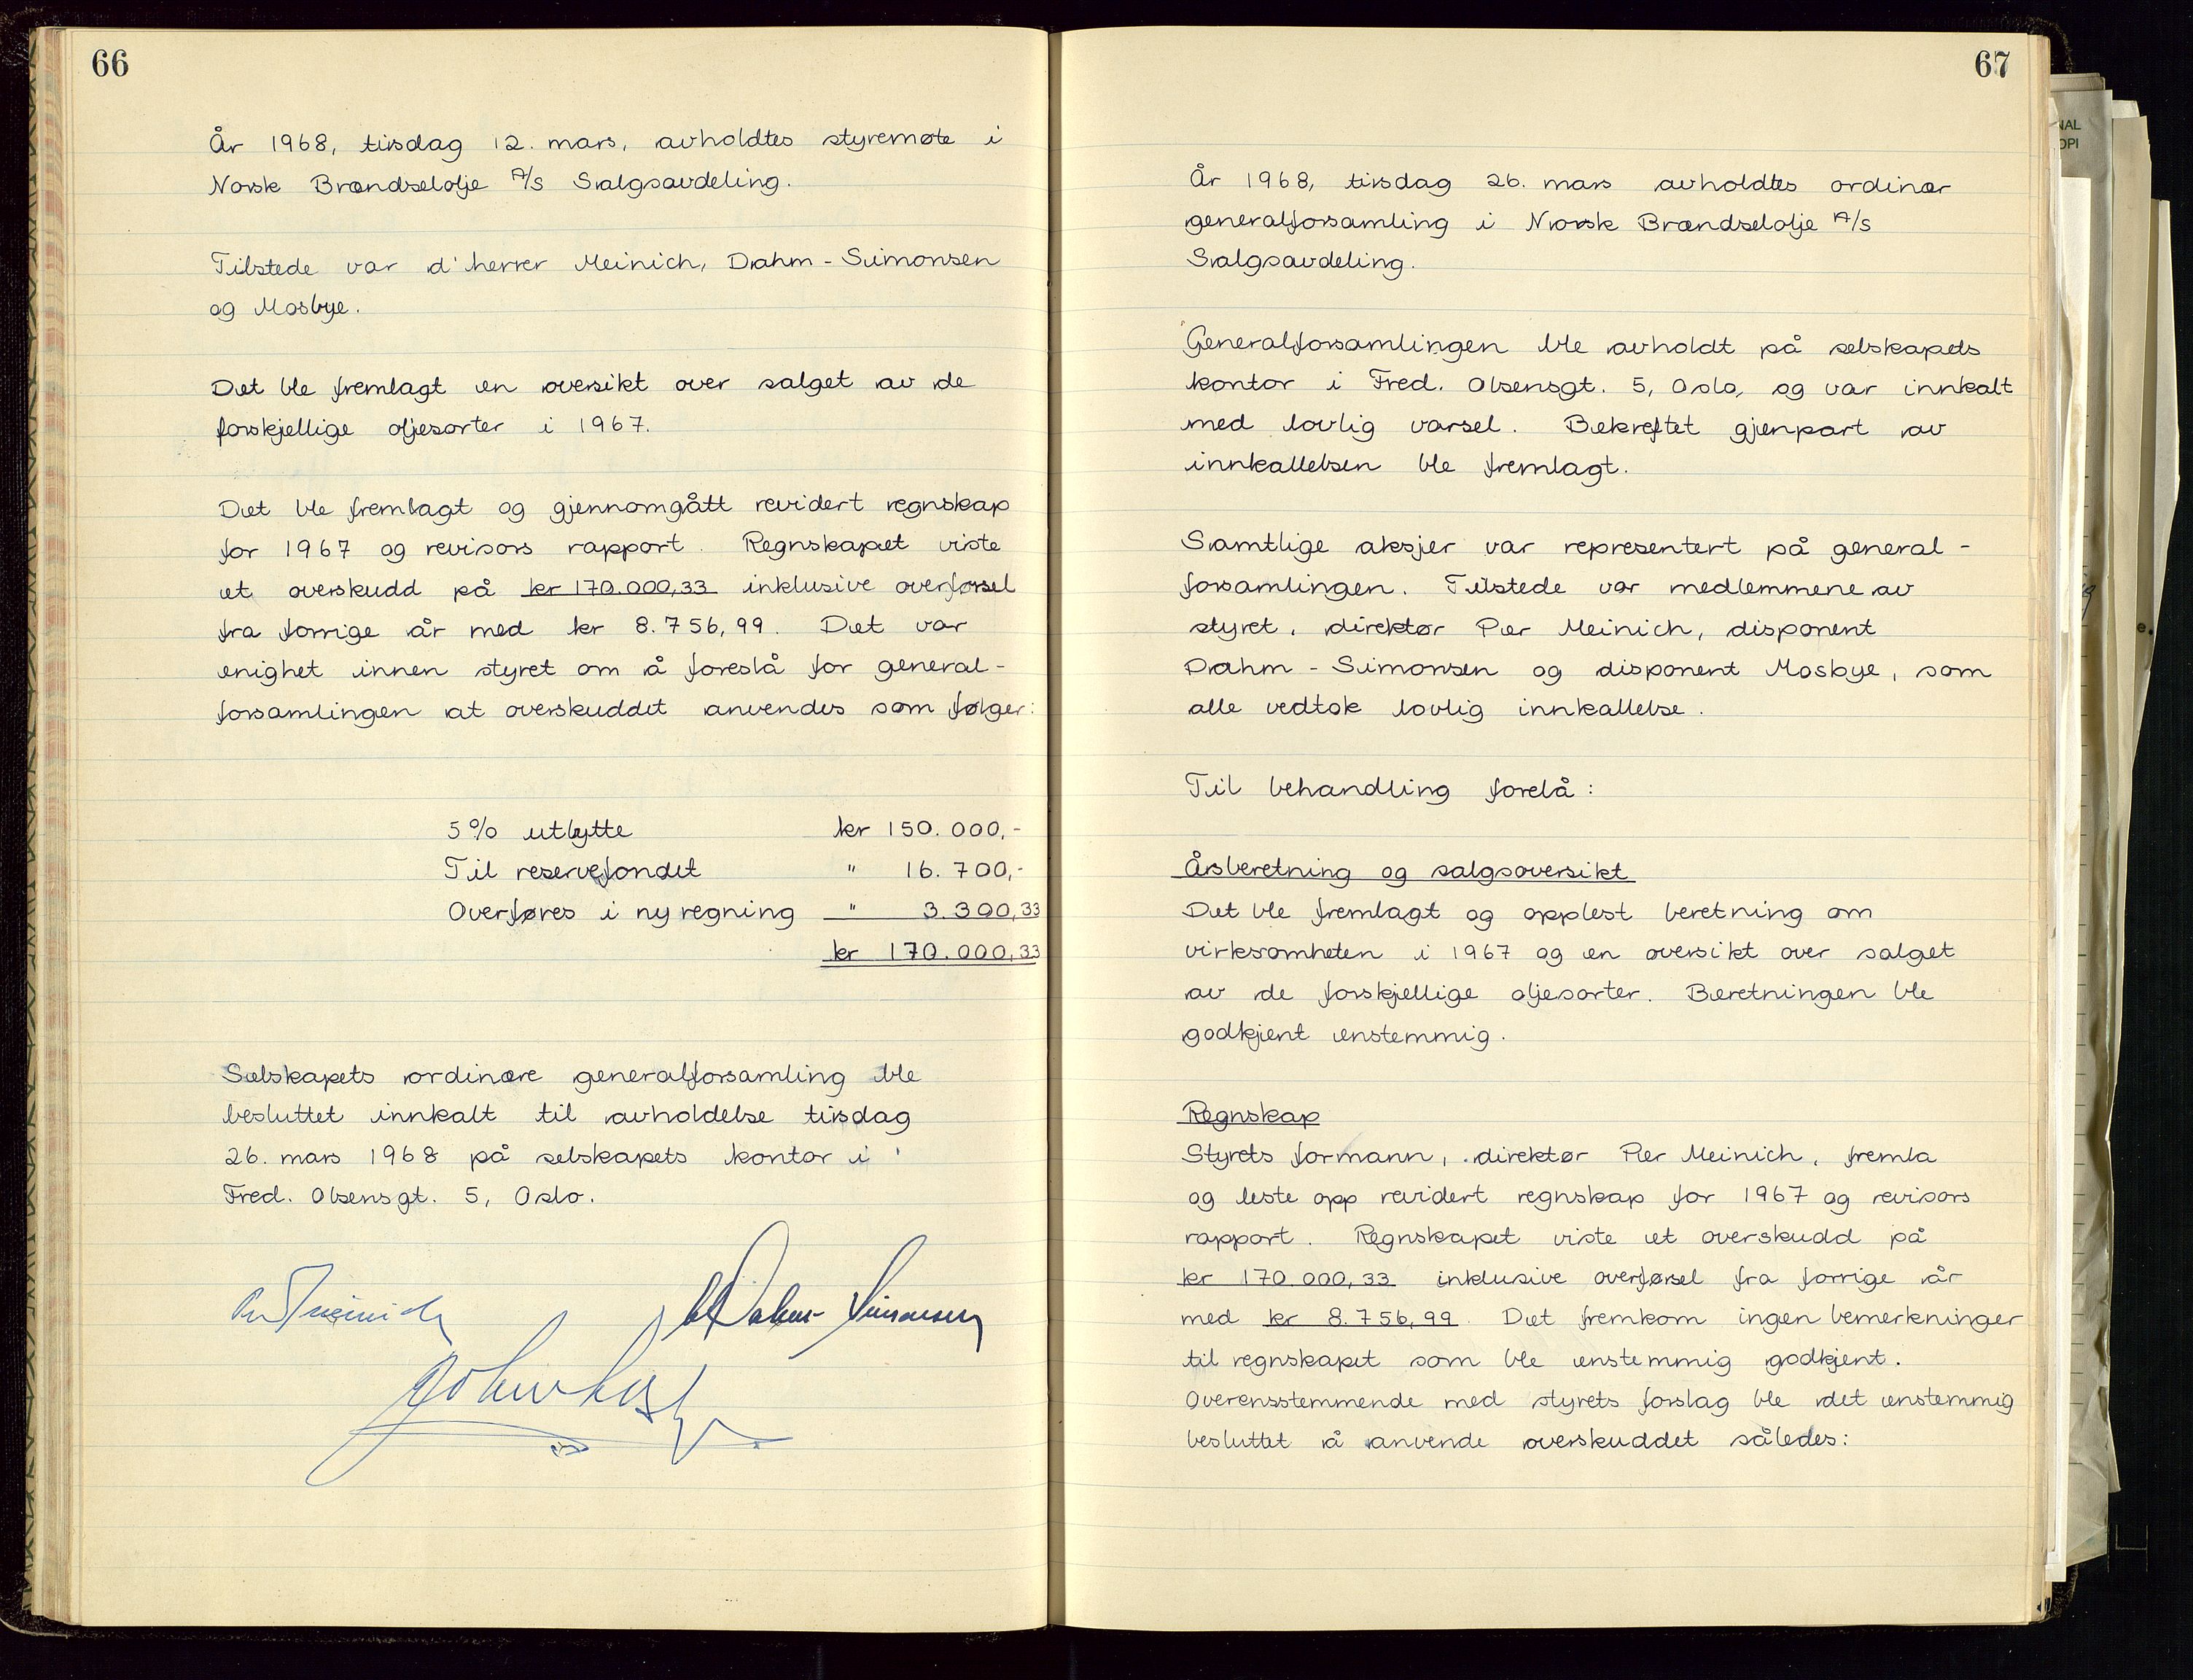 66
År 1968, tirsdag 12. mars, avholdtes styremøte i
Norsk Brændselolje A/S Salgsavdeling.
Tilstede var d'herrer Meinich, Dahm-Simonsen
og Mosbye.
Det ble fremlagt en oversikt over salget av de
forskjellige oljesorter i 1967.
Det ble fremlagt og gjennomgått revidert regnskap
for 1967 og revisors rapport. Regnskapet viste
et overskudd på kr 170.000,33 inklusive overførsel
fra forrige år med kr 8.756,99. Det var
enighet innen styret om å foreslå for general-
forsamlingen at overskuddet anvendes som følger:
5% utbytte kr 150.000,-
Til reservefondet " 16.700,-
Overføres i ny regning " 3.300,33
kr 170.000,33
Selskapets ordinære generalforsamling ble
besluttet innkalt til avholdelse tirsdag
26. mars 1968 på selskapets kontor i
Fred. Olsensgt. 5, Oslo.
Per Meinich Dahm-Simonsen
67
År 1968, tirsdag 26. mars avholdtes ordinær
generalforsamling i Norsk Brændselolje A/S
Salgsavdeling.
Generalforsamlingen ble avholdt på selskapets
kontor i Fred. Olsensgt. 5, Oslo, og var innkalt
med lovlig varsel. Bekreftet gjenpart av
innkallelsen ble fremlagt.
Samtlige aksjer var representert på general-
forsamlingen. Tilstede var medlemmene av
styret, direktør Per Meinich, disponent
Dahm-Simonsen og disponent Mosbye, som
alle vedtok lovlig innkallelse.
Til behandling forelå:
Årsberetning og salgsoversikt
Det ble fremlagt og opplest beretning om
virksomheten i 1967 og en oversikt over salget
av de forskjellige oljesorter. Beretningen ble
godkjent enstemmig.
Regnskap
Styrets formann, direktør Per Meinich, fremla
og leste opp revidert regnskap for 1967 og revisors
rapport. Regnskapet viste et overskudd på
kr 170.000,33 inklusive overførsel fra forrige år
med kr 8.756,99. Det fremkom ingen bemerkninger
til regnskapet som ble enstemmig godkjent.
Overensstemmende med styrets forslag ble det enstemmig
besluttet å anvende overskuddet således: